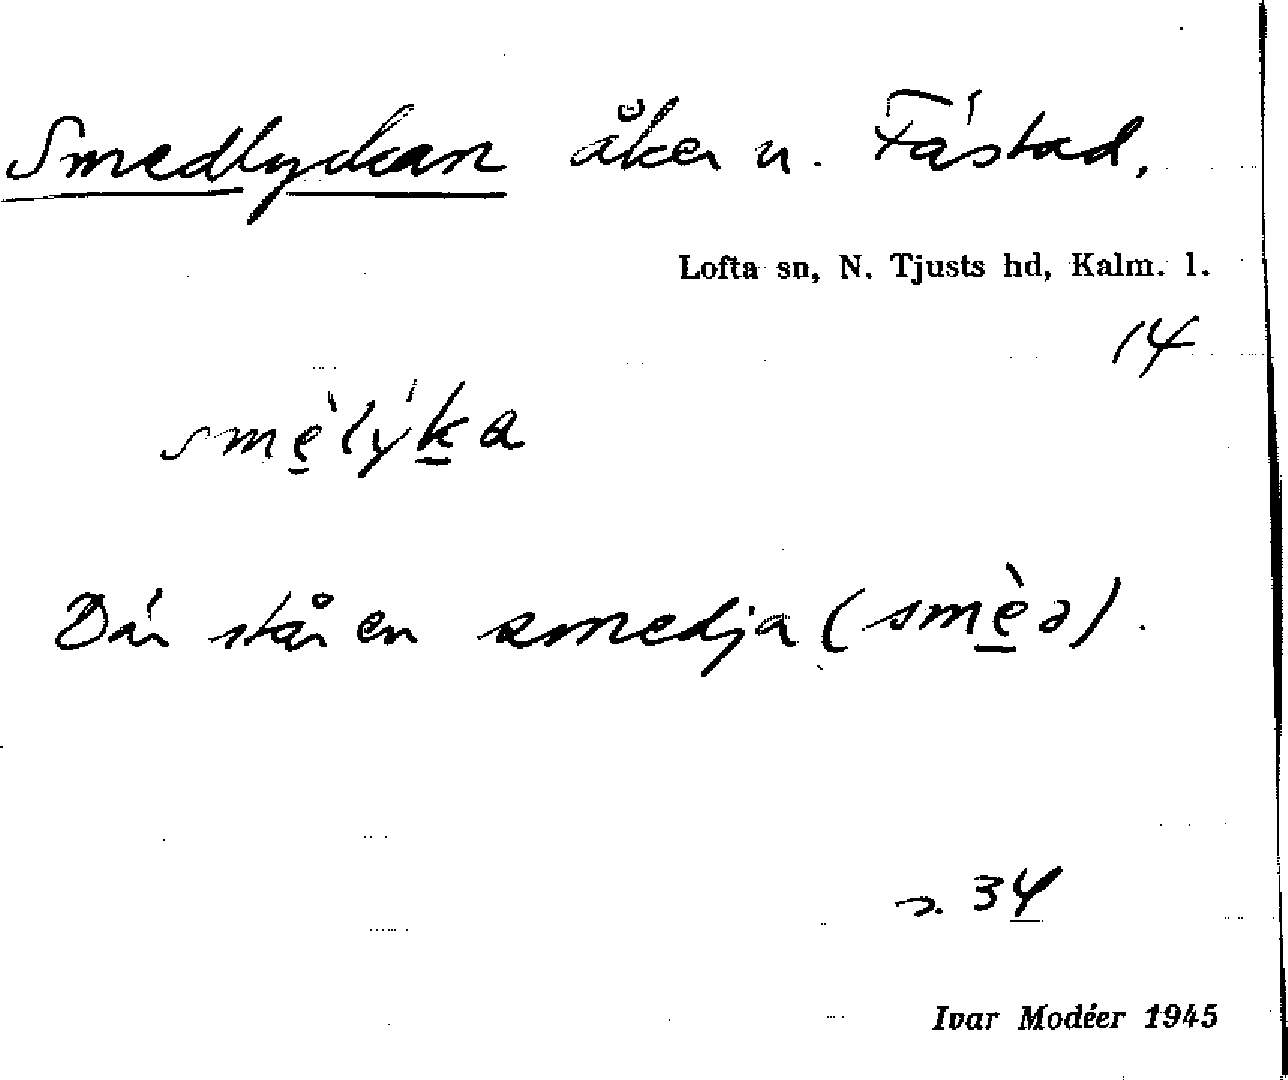 Smedlyckan åker u. Fästad.
Lofta sn, N. Tjusts hd, Kalm. l.
14
smè̠lýk̠a
Där står en smedja (smè̠ə).
s. 34
Ivar Modéer 1945